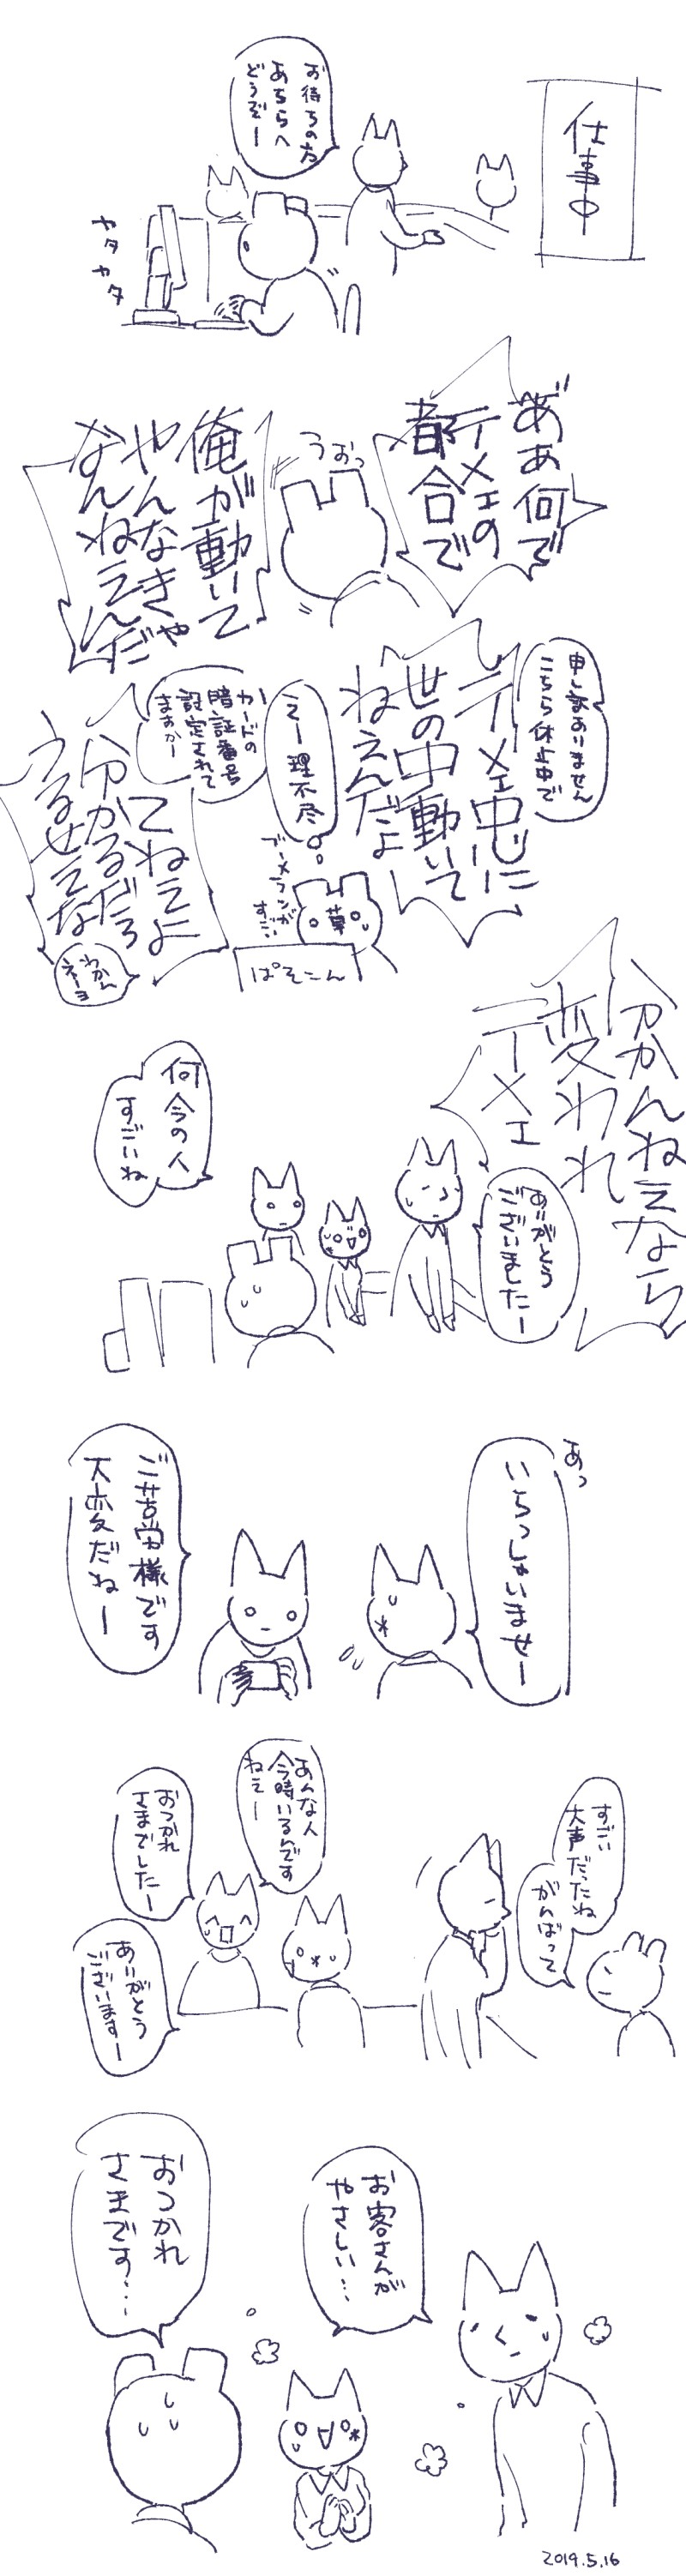 仕事中
お待ちの方
あちらへ
どうぞー
カタカタ
あぁ何で
テメェの
都合で
うおっ
俺が動いて
やんなきゃ
なんねえんだ
申し訳ありません
こちら休止中で
テメェ中心に
世の中動いて
ねえんだよ
えー理不尽
ブーメランが
すごい
草
ぱそこん
カードの
暗証番号
設定されて
ますかー
てねえよ
分かるだろ
うるせえな
わかん
ネーヨ
分かんねえなら
変われ
テメェ
ありがとう
ございましたー
何今の人
すごいね
あっ
いらっしゃいませー
ご苦労様です
大変だねー
すごい
大声だったね
がんばって
あんな人
今時いるんです
ねえー
おつかれ
さまでしたー
ありがとう
ございますー
お客さんが
やさしい…
おつかれ
さまです…
2019.5.16